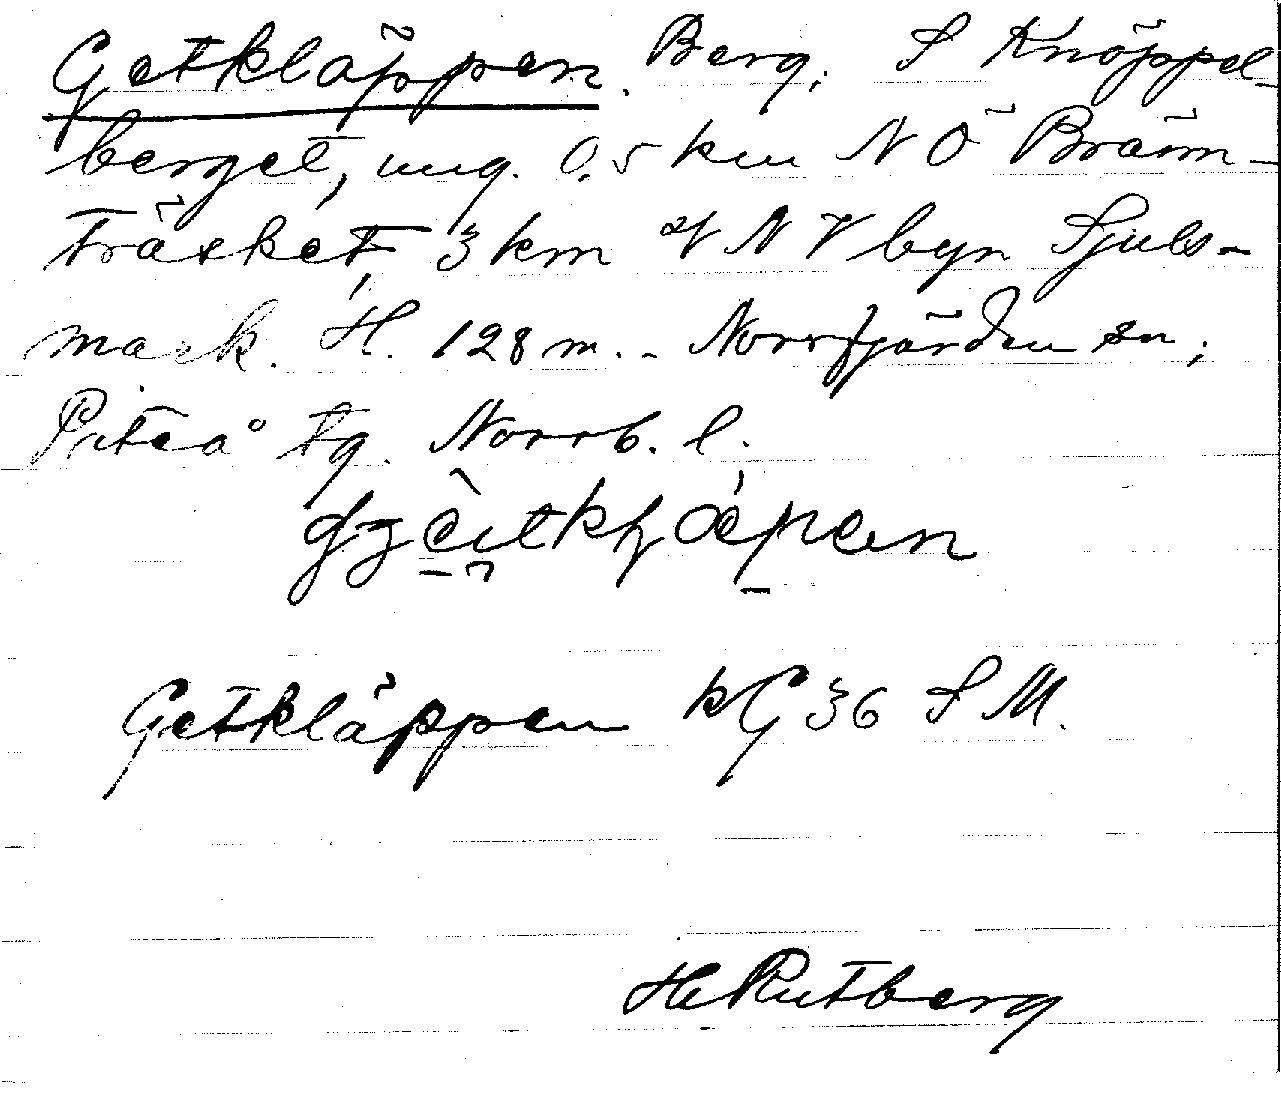 Getkläppen. Berg. S Knöppel-
berget, ung. 0,5 km NÖ Bränn-
träsket, 3 km NV byn Sjuls-
mark. H. 128 m. - Norrfjärden sn,
Piteå tg. Norrb. l.
Getkläppen kG 36 SM.
H Rutberg